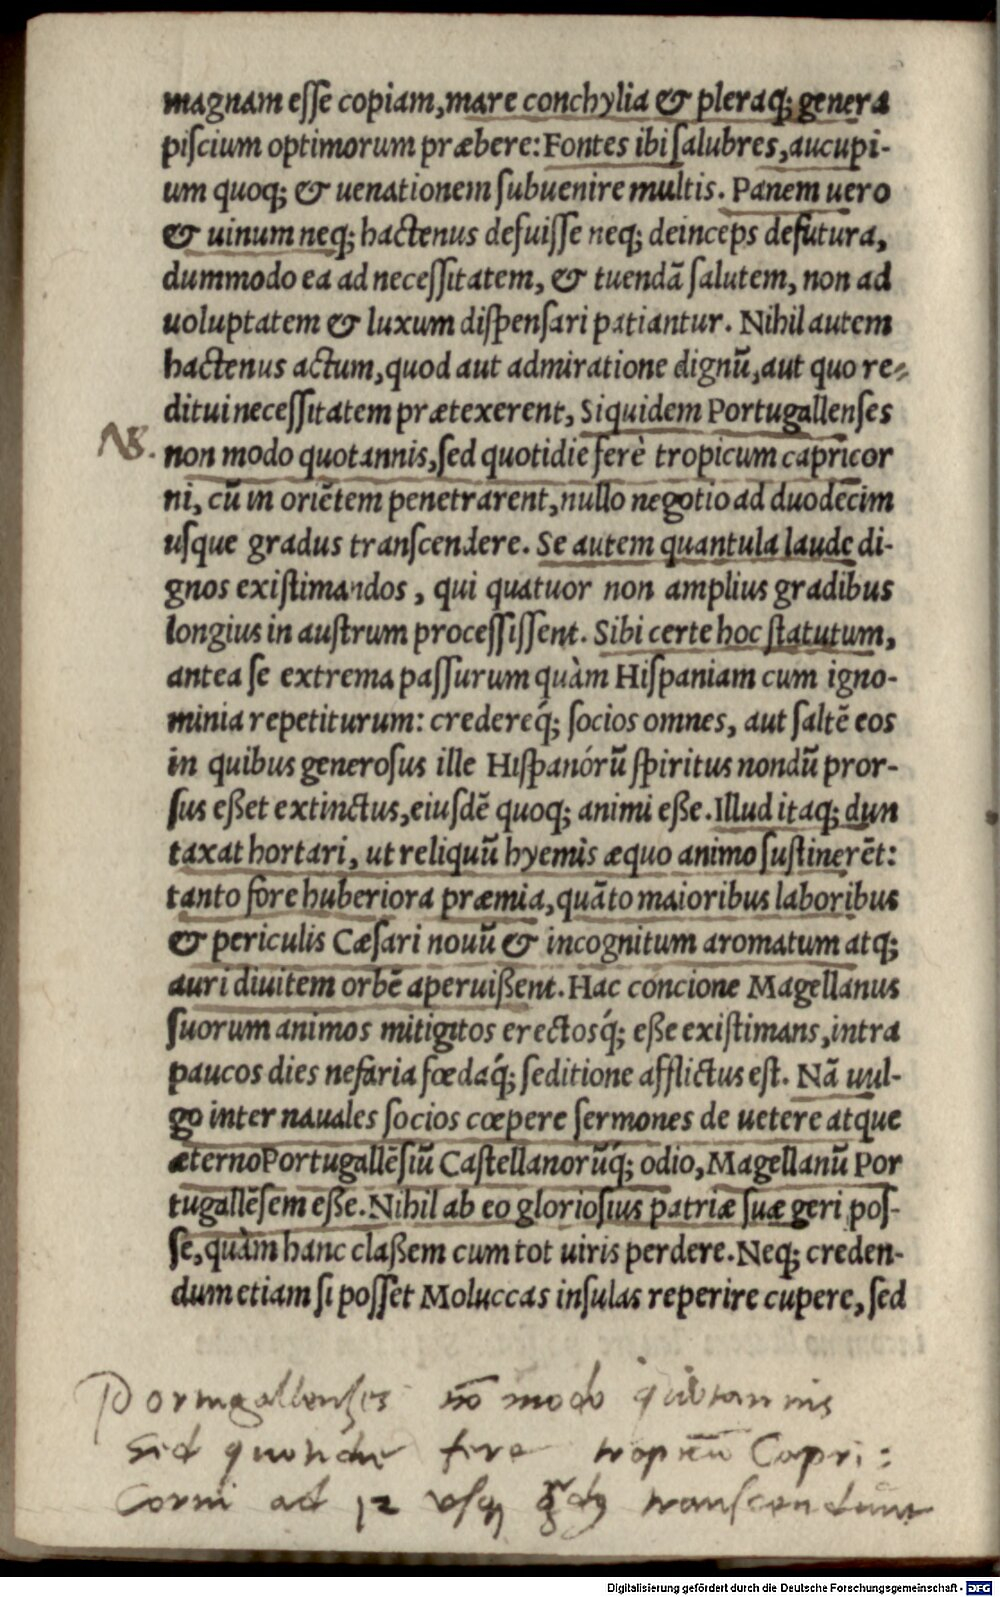 magnam eſſe copiam, mare conchylia & pleraq; genera
piſcium optimorum præbere: Fontes ibi ſalubres, aucupi-
um quoq; & uenationem ſubuenire multis. Panem uero
& uinum neq; hactenus defuiſſe neq; deinceps defutura,
dummodo ea ad neceſſitatem, & tuendā ſalutem, non ad
uoluptatem & luxum diſpenſari patiantur. Nihil autem
hactenus actum, quod aut admiratione dignū, aut quo re-
ditui neceſſitatem prætexerent, Siquidem Portugallenſes
NB. non modo quotannis, ſed quotidie ferè tropicum capricor
ni, cū in oriētem penetrarent, nullo negotio ad duodecim
uſque gradus tranſcendere. Se autem quantula laude di-
gnos exiſtimandos, qui quatuor non amplius gradibus
longius in auſtrum proceſſiſſent. Sibi certe hoc ſtatutum,
antea ſe extrema paſſurum quàm Hiſpaniam cum igno-
minia repetiturum: credereq́; ſocios omnes, aut ſaltē eos
in quibus generoſus ille Hiſpanórū ſpiritus nondū pror-
ſus eßet extinctus, eiuſdē quoq; animi eße. Illud itaq; dun
taxat hortari, ut reliquū hyemis æquo animo ſuſtinerēt:
tanto fore huberiora præmia, quāto maioribus laboribus
& periculis Cæſari nouū & incognitum aromatum atq;
auri diuitem orbē aperuißent. Hac concione Magellanus
ſuorum animos mitigatos erectosq́; eße exiſtimans, intra
paucos dies nefaria fœdaq́; ſeditione afflictus eſt. Nā uul-
go inter nauales ſocios cœpere ſermones de uetere atque
æterno Portugallēſiū Caſtellanorūq́; odio, Magellanū Por
tugallēſem eße. Nihil ab eo glorioſius patriæ ſuæ geri poſ-
ſe, quàm hanc claßem cum tot uiris perdere. Neq; creden-
dum etiam ſi poſſet Moluccas inſulas reperire cupere, ſed
Portugallenſes nō modo quotannis
Sed quotidie fere tropicū Capri:
Corni ad 12 uſq; gradus tranſcendunt
Digitalisierung gefördert durch die Deutsche Forschungsgemeinschaft - DFG